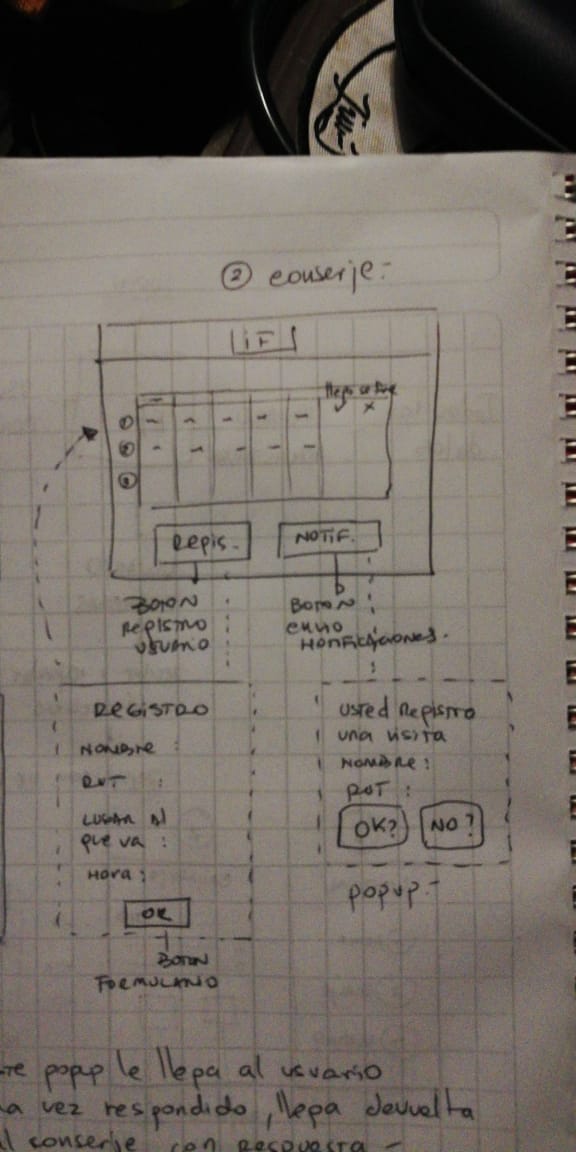 ② conserje:-
IF
llega
✓ x
① - - - - -
② - - - - -
③
Regis. NOTIF.
BOTON
REGISTRO
USUARIO
BOTON
envio
NOTIFICACIONES.
REGISTRO
NOMBRE :
RUT :
LUGAR Al
que va :
HORA :
OK
BOTON
FORMULARIO
usted Registro
una visita
NOMBRE :
RUT :
OK? NO?
popup.-
popup le llega al usuario
vez respondido, llega devuelta
conserje con respuesta -